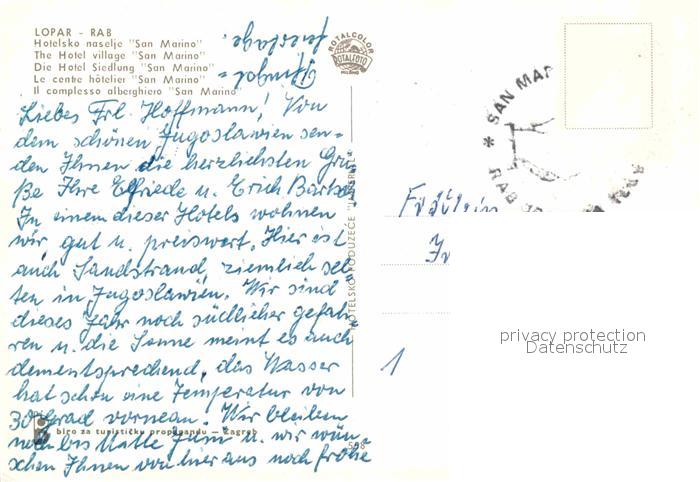 LOPAR - RAB
Hotelsko naselje "San Marino"
The Hotel village "San Marino"
Die Hotel Siedlung "San Marino"
Le centre hôtelier "San Marino"
Il complesso alberghiero "San Marino"
Pfingst =
feiertage.
ROTALCOLOR
ROTALFOTO
MILANO
Liebes Frl. Hoffmann! Von
dem schönen Jugoslawien sen=
den Ihnen die herzlichsten Grü
ße Ihre Elfriede u. Erich Bartsch
In einem dieser Hotels wohnen
wir, gut u. preiswert. Hier ist
auch Sandstrand, ziemlich sel
ten in Jugoslawien. Wir sind
dieses Jahr noch südlicher gefah
ren u. die Sonne meint es auch
dementsprechend, das Wasser
hat schon eine Temperatur von
Grad vornean. Wir bleiben
noch bis Mitte Juni u. wir wün=
schen Ihnen von hier aus noch frohe
biro za turističku propagandu — Zagreb
HOTELSKO PODUZEĆE
* SAN MAR
RAB
Fräulein
1
privacy protection
Datenschutz